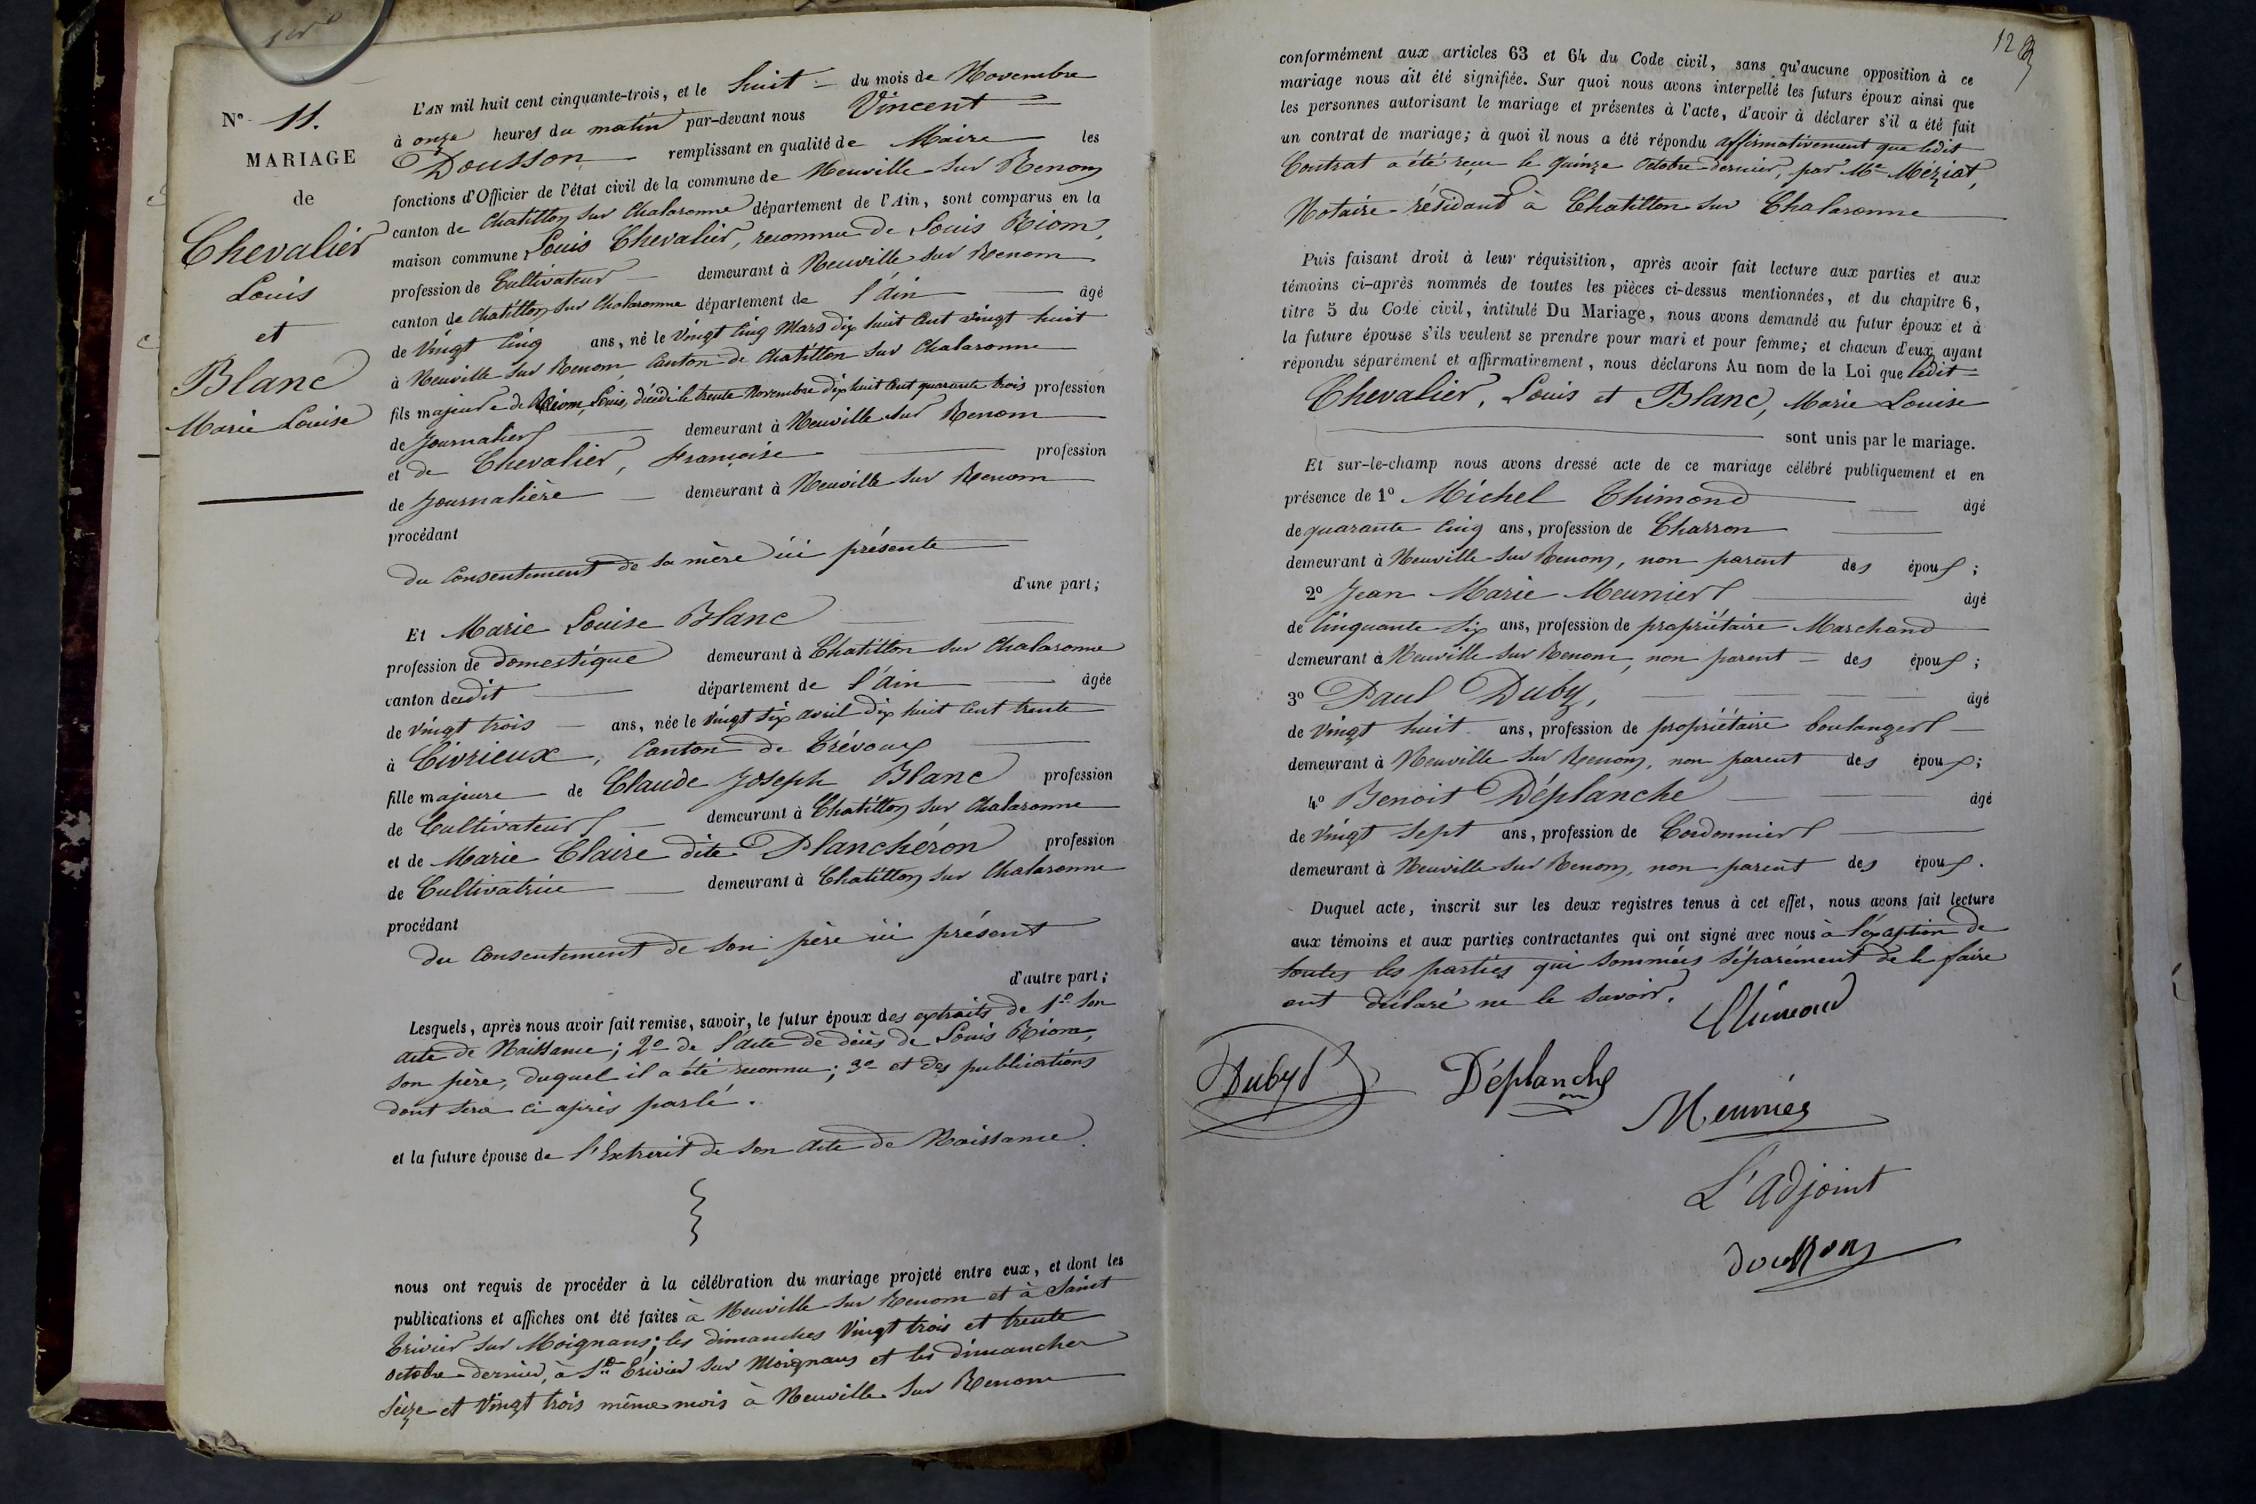 N° 11.
MARIAGE
de
Chevalier
Louis
et
Blanc
Marie Louise
L'AN mil huit cent cinquante-trois, et le huit du mois de Novembre
à onze heures du matin par-devant nous Vincent
Dousson remplissant en qualité de Maire les
fonctions d'Officier de l'état civil de la commune de Neuville sur Renom
canton de Chatillon sur Chalaronne département de l'Ain, sont comparus en la
maison commune Louis Chevalier, reconnu de Louis Riom,
profession de Cultivateur demeurant à Neuville sur Renom
canton de Chatillon sur Chalaronne département de l'Ain âgé
de Vingt Cinq ans, né le Vingt Cinq Mars dix huit Cent vingt huit
à Neuville sur Renom Canton de Chatillon sur Chalaronne
fils majeur de Riom, Louis, décédé le trente Novembre dix huit Cent quarante trois profession
de Journalier demeurant à Neuville sur Renom
et de Chevalier, Françoise profession
de Journalière demeurant à Neuville sur Renom
procédant
du Consentement de sa mère ici présente
d'une part;
Et Marie Louise Blanc
profession de domestique demeurant à Chatillon sur Chalaronne
canton dudit département de l'Ain âgée
de vingt trois ans, née le Vingt Six avril dix huit Cent trente
à Civrieux, Canton de Trévoux
fille majeure de Claude Joseph Blanc profession
de Cultivateur demeurant à Chatillon sur Chalaronne
et de Marie Claire dite Planchéron profession
de Cultivatrice demeurant à Chatillon sur Chalaronne
procédant
du Consentement de son père ici présent
d'autre part;
Lesquels, après nous avoir fait remise, savoir, le futur époux des extraits de 1° son
acte de Naissance; 2° de l'acte de décès de Louis Riom,
son père, duquel il a été reconnu; 3° et des publications
dont sera ci après parlé.
et la future épouse de l'Extrait de son acte de Naissance.
nous ont requis de procéder à la célébration du mariage projeté entre eux, et dont les
publications et affiches ont été faites à Neuville sur Renom et à Saint
Trivier sur Moignans; les dimanches Vingt trois et trente
octobre dernier, à St Trivier sur Moignans et les dimanches
Seize et Vingt trois même mois à Neuville sur Renom
123
conformément aux articles 63 et 64 du Code civil, sans qu'aucune opposition à ce
mariage nous ait été signifiée. Sur quoi nous avons interpellé les futurs époux ainsi que
les personnes autorisant le mariage et présentes à l'acte, d'avoir à déclarer s'il a été fait
un contrat de mariage; à quoi il nous a été répondu affirmativement que ledit
Contrat a été reçu le quinze Octobre dernier, par Me Méziat,
Notaire résidant à Chatillon sur Chalaronne
Puis faisant droit à leur réquisition, après avoir fait lecture aux parties et aux
témoins ci-après nommés de toutes les pièces ci-dessus mentionnées, et du chapitre 6,
titre 5 du Code civil, intitulé Du Mariage, nous avons demandé au futur époux et à
la future épouse s'ils veulent se prendre pour mari et pour femme; et chacun d'eux ayant
répondu séparément et affirmativement, nous déclarons Au nom de la Loi que ledit
Chevalier, Louis et Blanc, Marie Louise
sont unis par le mariage.
Et sur-le-champ nous avons dressé acte de ce mariage célébré publiquement et en
présence de 1° Michel Thimond âgé
de quarante Cinq ans, profession de Charron
demeurant à Neuville sur Renom, non parent des époux;
2° Jean Marie Meunier âgé
de Cinquante Six ans, profession de propriétaire Marchand
demeurant à Neuville sur Renom, non parent des époux;
3° Paul Duby, âgé
de Vingt huit ans, profession de propriétaire boulanger
demeurant à Neuville sur Renom, non parent des époux;
4° Benoit Déplanche âgé
de Vingt Sept ans, profession de Cordonnier
demeurant à Neuville sur Renom, non parent des époux.
Duquel acte, inscrit sur les deux registres tenus à cet effet, nous avons fait lecture
aux témoins et aux parties contractantes qui ont signé avec nous à l'exception de
toutes les parties qui sommées séparément de le faire
ont déclaré ne le savoir.
Thimond
Duby
Déplanche
Meunier
L'Adjoint
Dousson